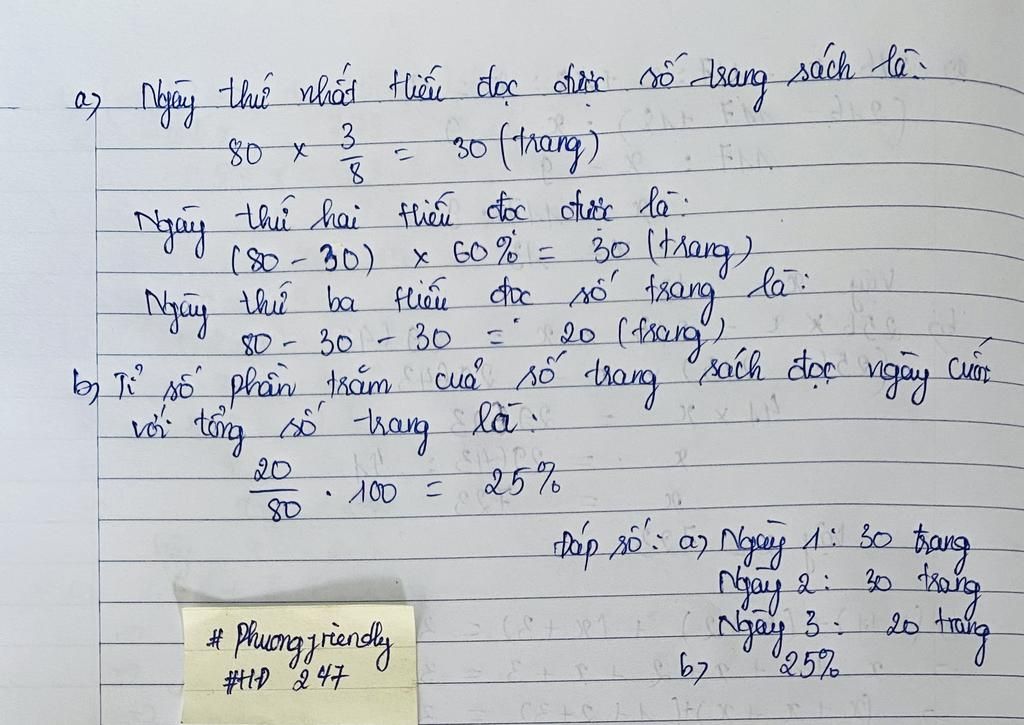 a) Ngày thứ nhất Hiếu đọc được số trang sách là:
80 x 3/8 = 30 (trang)
Ngày thứ hai Hiếu đọc được là:
(80 - 30) x 60% = 30 (trang)
Ngày thứ ba Hiếu đọc số trang là:
80 - 30 - 30 = 20 (trang)
b) Tỉ số phần trăm của số trang sách đọc ngày cuối
với tổng số trang là:
20/80 . 100 = 25%
Đáp số: a) Ngày 1: 30 trang
Ngày 2: 30 trang
Ngày 3: 20 trang
b) 25%
# Phuongfriendly
#HD 247